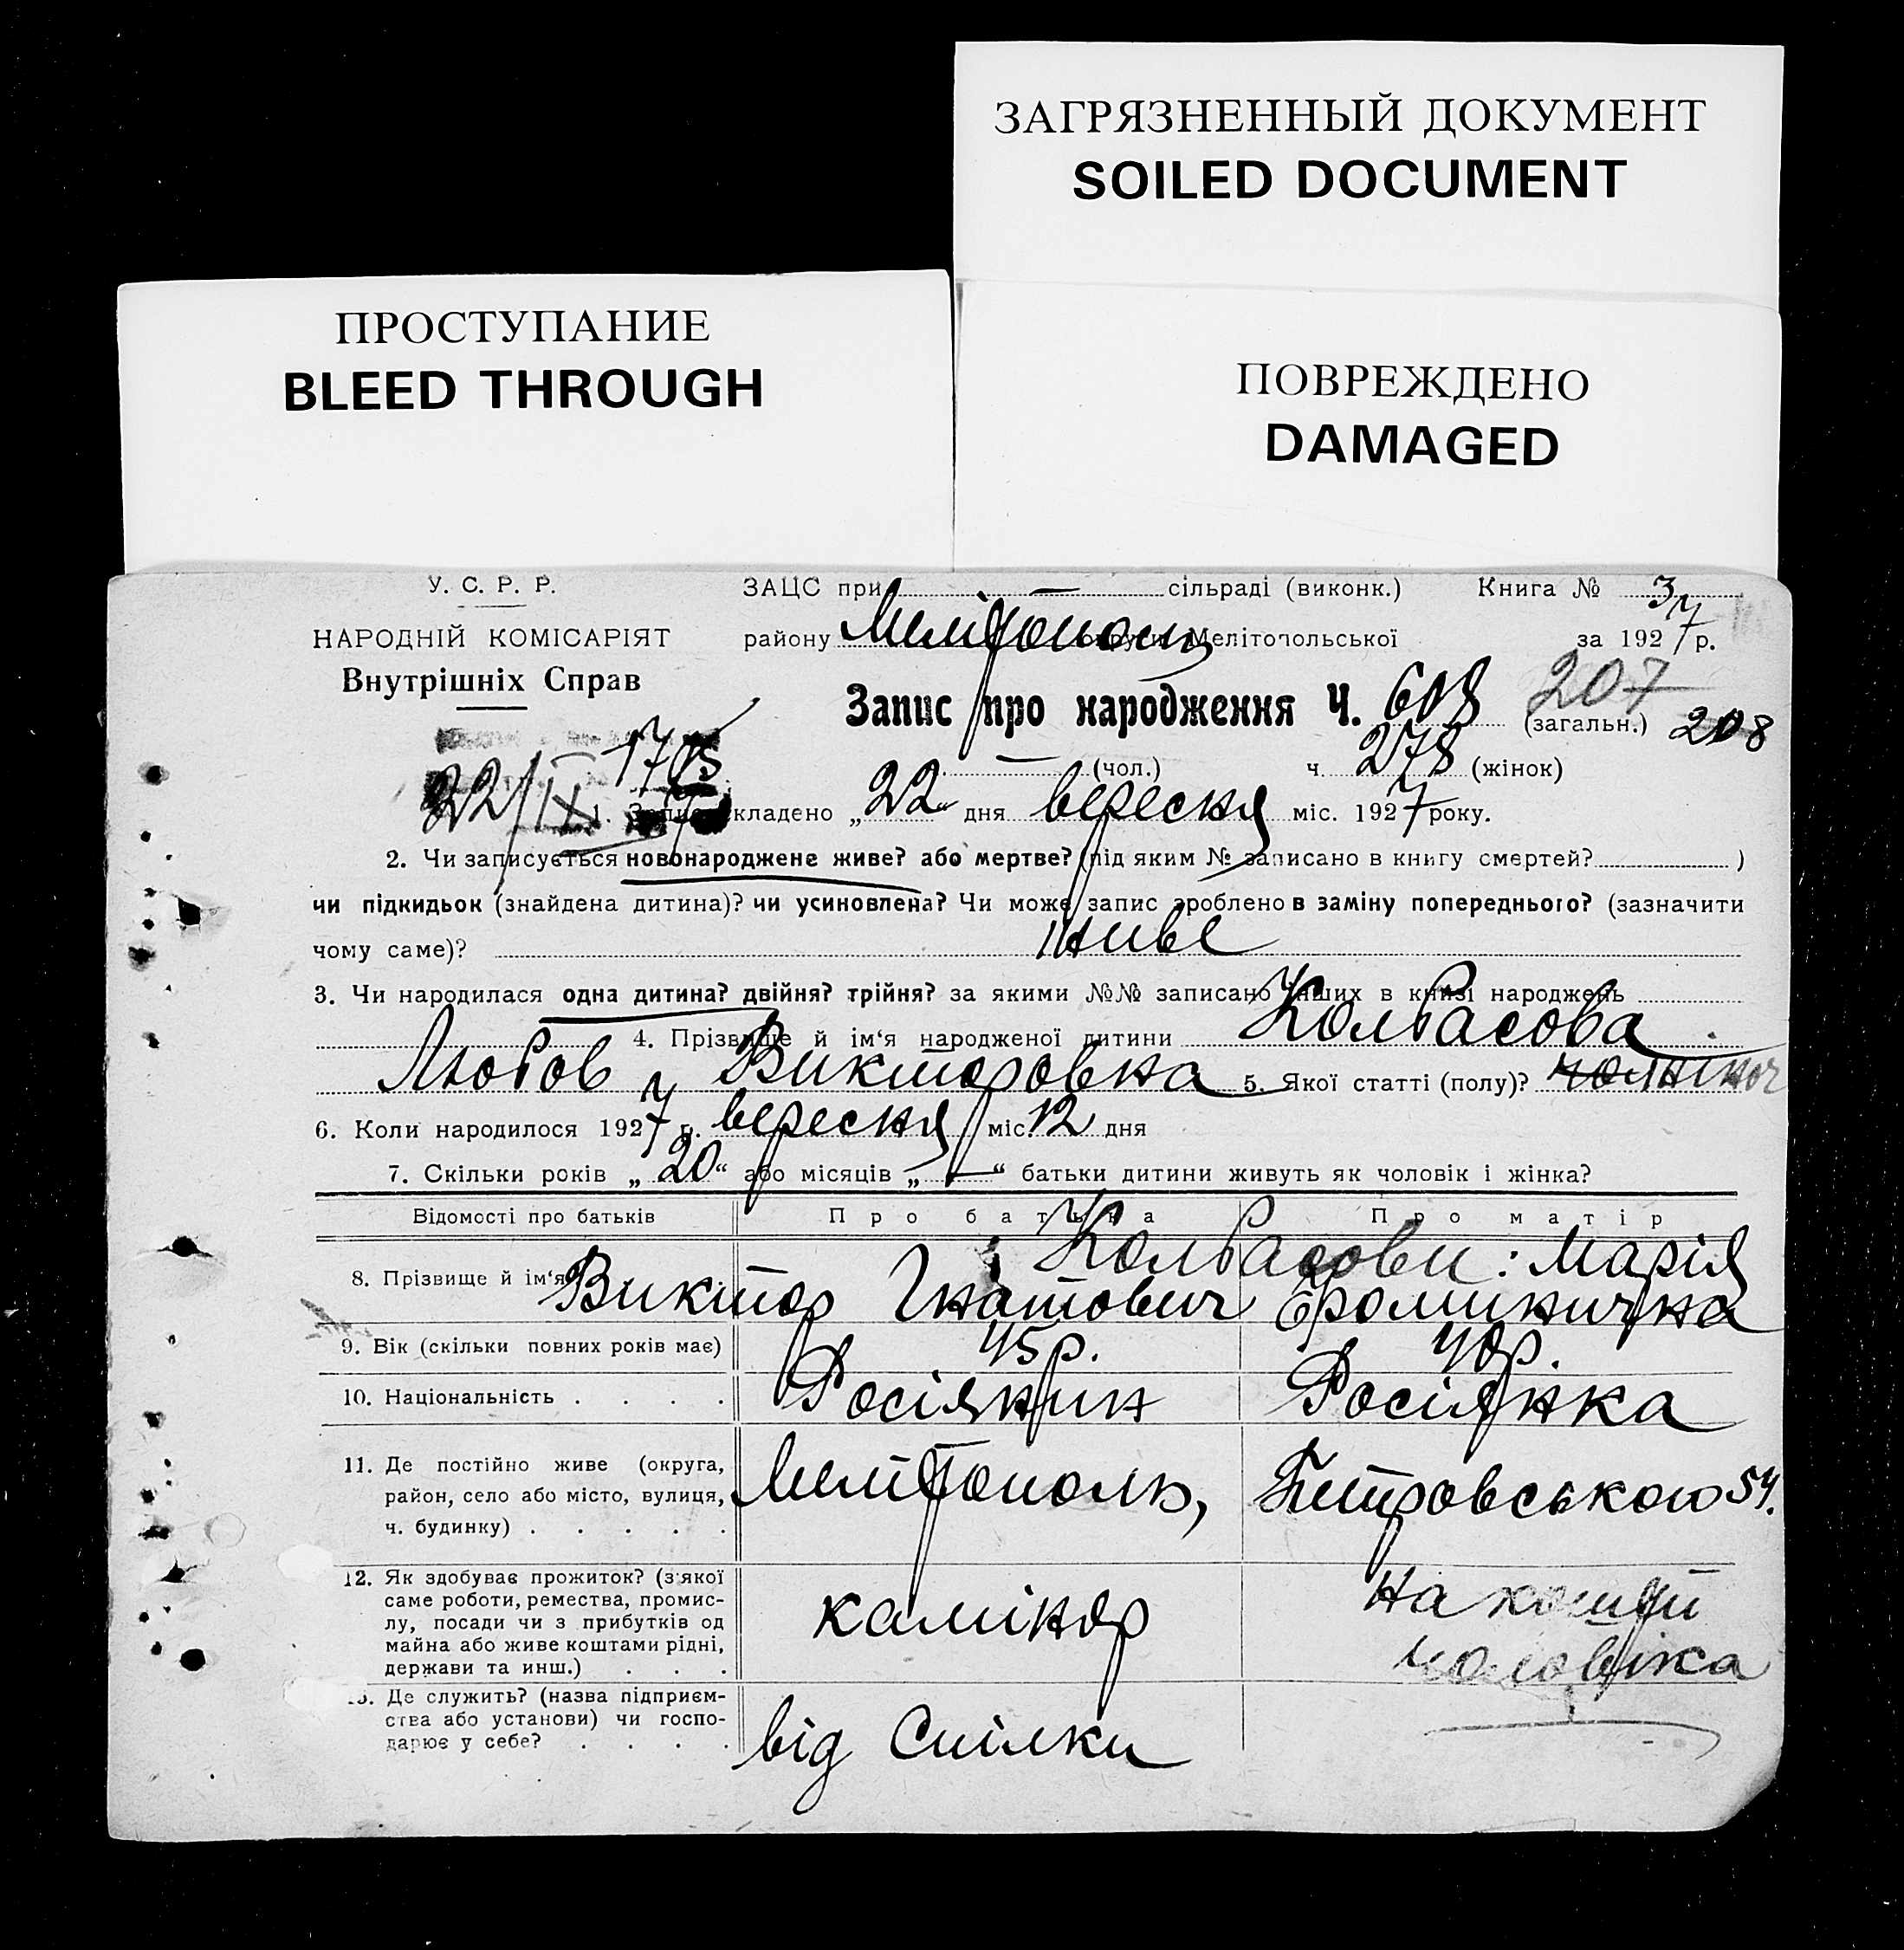 ЗАГРЯЗНЕННЫЙ ДОКУМЕНТ
SOILED DOCUMENT
ПРОСТУПАНИЕ
BLEED THROUGH
ПОВРЕЖДЕНО
DAMAGED
У. С. Р. Р.
НАРОДНІЙ КОМІСАРІЯТ
Внутрішніх Справ
ЗАЦС при — сільраді (виконк.) Книга № 3
району округи Мелітопольської за 1927 р.
Запис про народження Ч. 608 (загальн.) 207
208
— (чол.) ч. 278 (жінок)
22/IX
1. Запис складено „22“ дня вересня міс. 1927 року.
2. Чи записується новонароджене живе? або мертве? (під яким № записано в книгу смертей? )
чи підкидьок (знайдена дитина)? чи усиновлена? Чи може запис зроблено в заміну попереднього? (зазначити
чому саме)? живе
3. Чи народилася одна дитина? двійня? трійня? за якими №№ записано інших в книзі народжень
4. Прізвище й ім‘я народженої дитини Колбасова
Любов Викторовна 5. Якої статті (полу)?
6. Коли народилося 1927 р. вересня міс. 12 дня
7. Скільки років „20“ або місяців „—“ батьки дитини живуть як чоловік і жінка?
Відомості про батьків Про батька Про матір
8. Прізвище й ім‘я Колбасови: Марія
Виктор Игнатович
9. Вік (скільки повних років має) 45 р. 40 р.
10. Національність . . . . Росіянин Росіянка
11. Де постійно живе (округа,
район, село або місто, вулиця,
ч. будинку) . . . . . Мелітополь, Петровського 54.
12. Як здобуває прожиток? (з якої
саме роботи, ремества, промис-
лу, посади чи з прибутків од
майна або живе коштами рідні,
держави та инш.) . . . каміняр На кошти
чоловіка
13. Де служить? (назва підприєм-
ства або установи) чи госпо-
дарює у себе? . . . . від Спілки